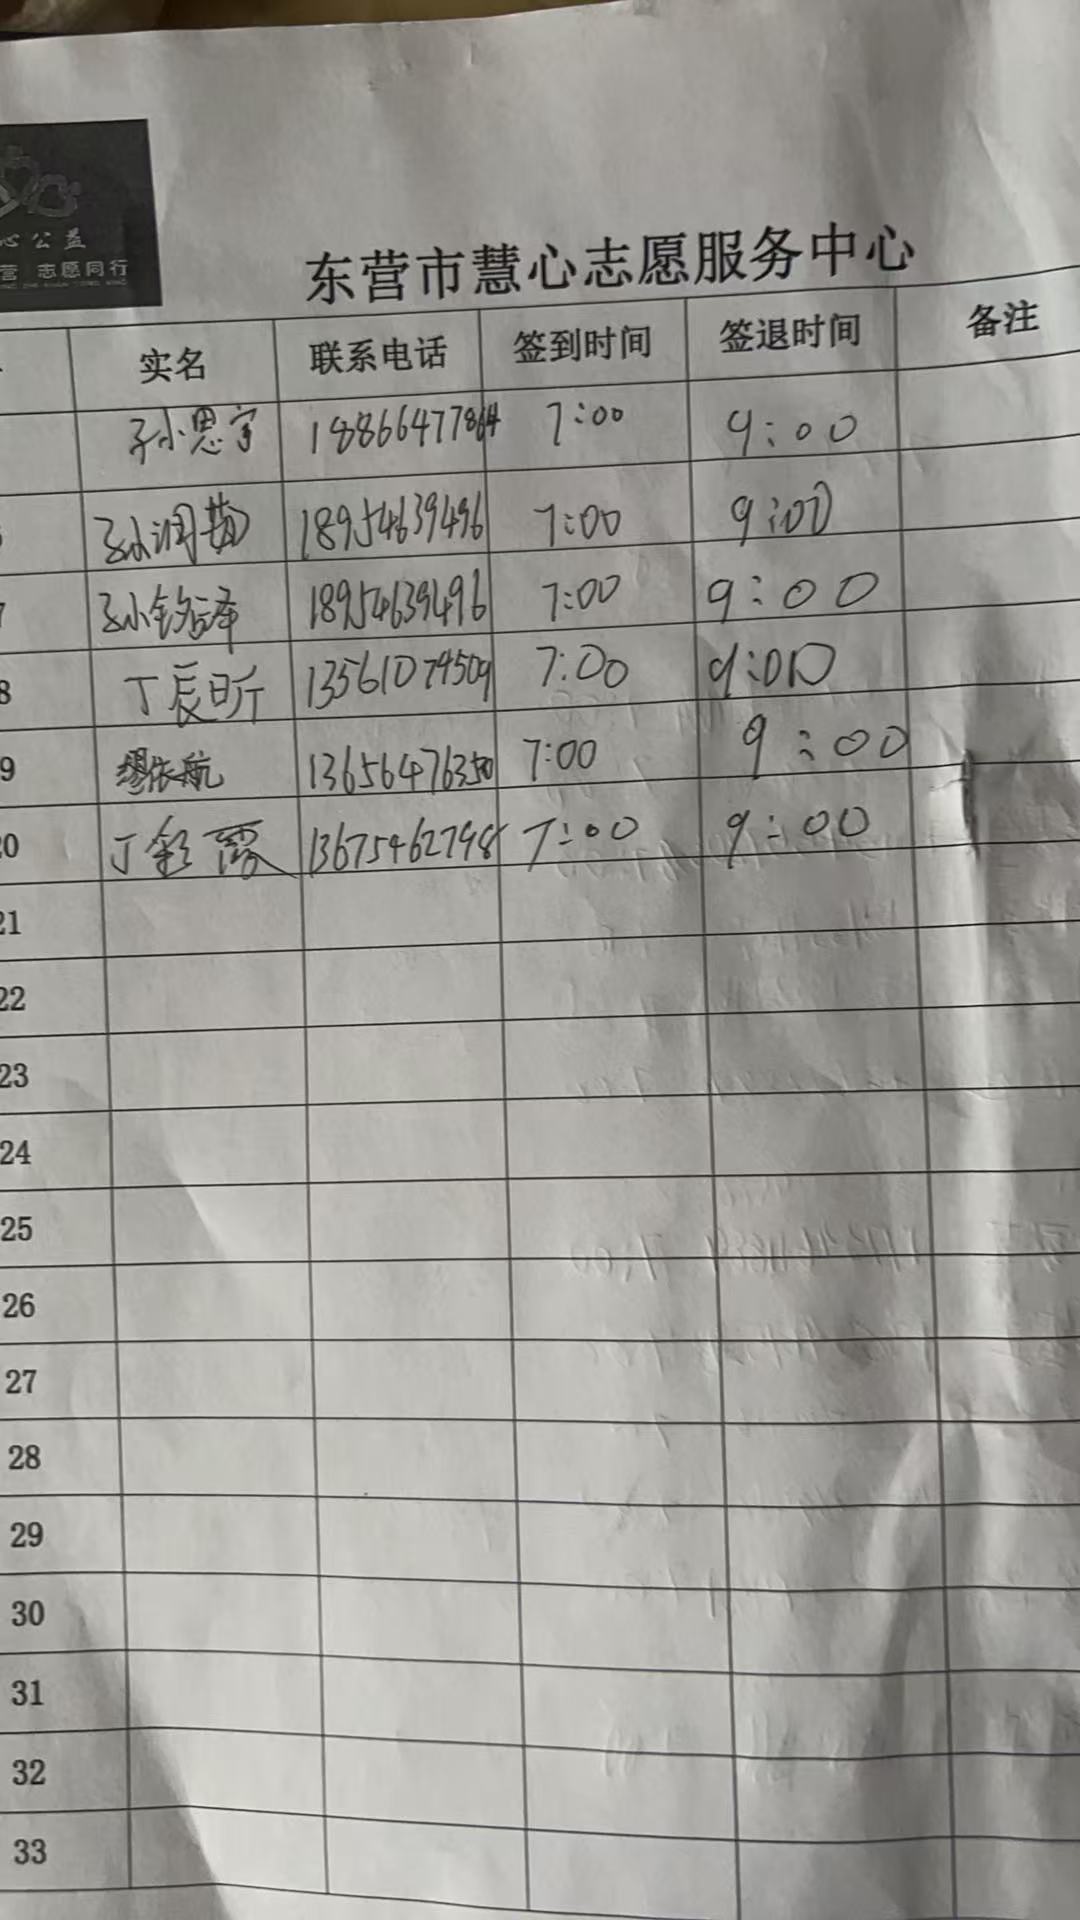 心公益
营 志愿同行
东营市慧心志愿服务中心
实名 联系电话 签到时间 签退时间 备注
孙思宇 18866477864 7:00 9:00
孙润 18954639496 7:00 9:00
7 孙铭泽 18954639496 7:00 9:00
8 丁辰昕 13561079509 7:00 9:00
9 缪依航 13656476350 7:00 9:00
20 丁彩霞 13675462798 7:00 9:00
21
22
23
24
25
26
27
28
29
30
31
32
33